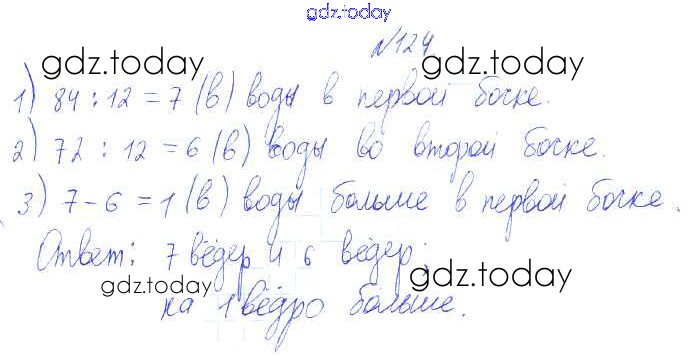 gdz.today
№124
gdz.today gdz.today
1) 84 : 12 = 7 (в) воды в первой бочке.
gdz.today
2) 72 : 12 = 6 (в) воды во второй бочке.
3) 7 - 6 = 1 (в) воды больше в первой бочке.
gdz.today
Ответ: 7 вёдер и 6 вёдер;
gdz.today gdz.today
на 1 ведро больше.
gdz.today